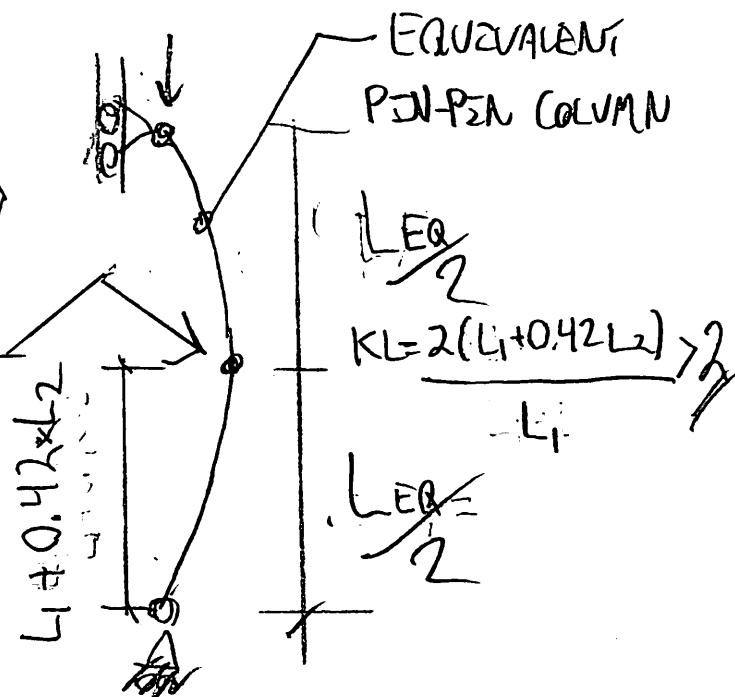 EQUIVALENT
PIN-PIN COLUMN
LEQ/2
KL=2(L1+0.42L2) >2
L1
L1+0.42xL2
LEQ=/2